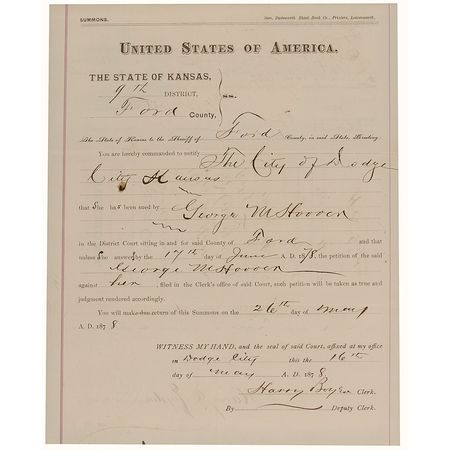 SUMMONS.
Sam. Dodsworth, Blank Book Co., Printers, Leavenworth.
UNITED STATES OF AMERICA.
THE STATE OF KANSAS,
9th DISTRICT,
Ford County,
ss.
The State of Kansas to the Sheriff of Ford County, in said State, Greeting
You are hereby commanded to notify The City of Dodge
City Kansas
that She has been sued by George M Hoover
in the District Court sitting in and for said County of Ford and that
unless She answer by the 17th day of June A. D. 1878, the petition of the said
George M Hoover
against her, filed in the Clerk's office of said Court, such petition will be taken as true and
judgment rendered accordingly.
You will make due return of this Summons on the 26th day of May
A. D. 1878
WITNESS MY HAND, and the seal of said Court, affixed at my office
in Dodge City this the 16th
day of May A. D. 1878,
Harry Boyer Clerk.
By Deputy Clerk.